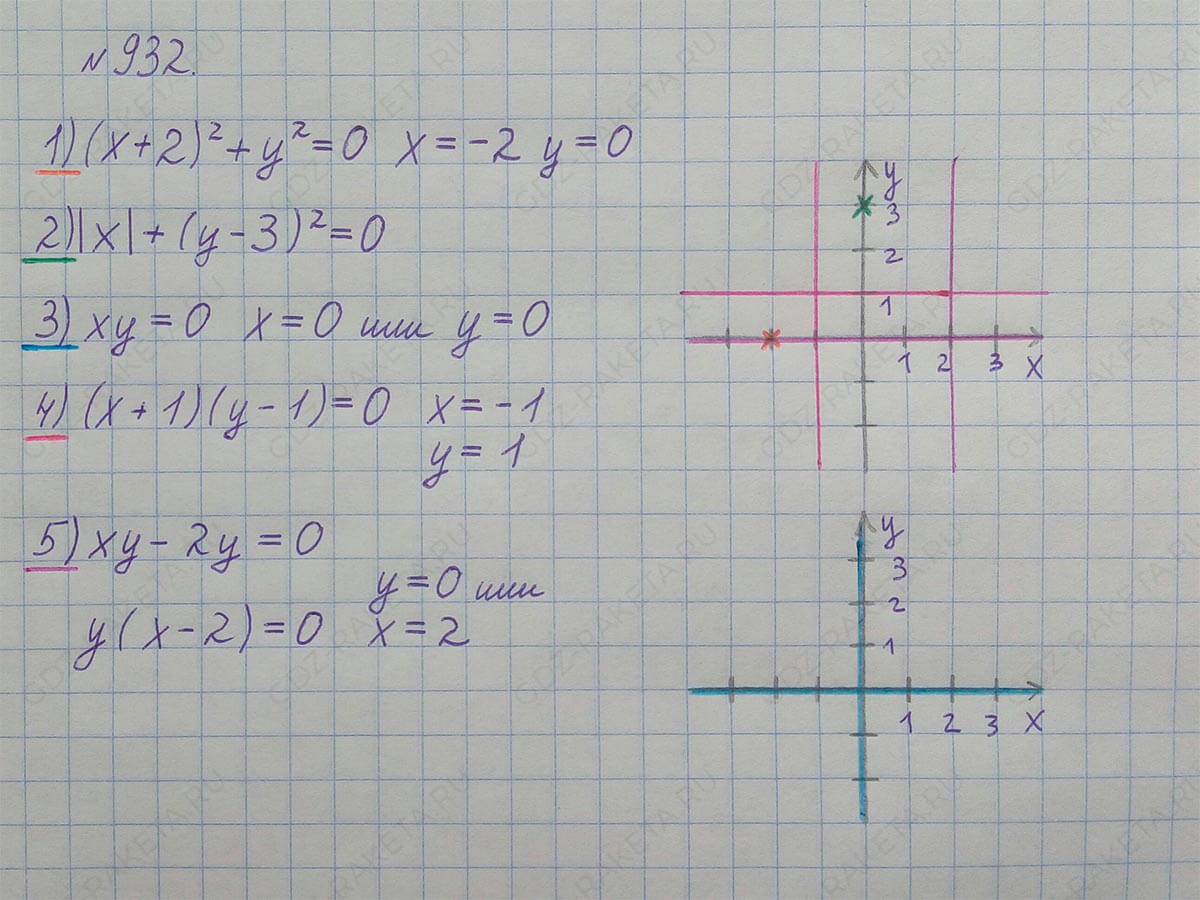 №932.
1) (x+2)²+y²=0 x=-2 y=0
2) |x|+(y-3)²=0
3) xy=0 x=0 или y=0
4) (x+1)(y-1)=0 x=-1
y=1
5) xy-2y=0
y=0 или
y(x-2)=0 x=2
y
3
2
1
1 2 3 x
y
3
2
1
1 2 3 x
GDZ-RAKETA.RU